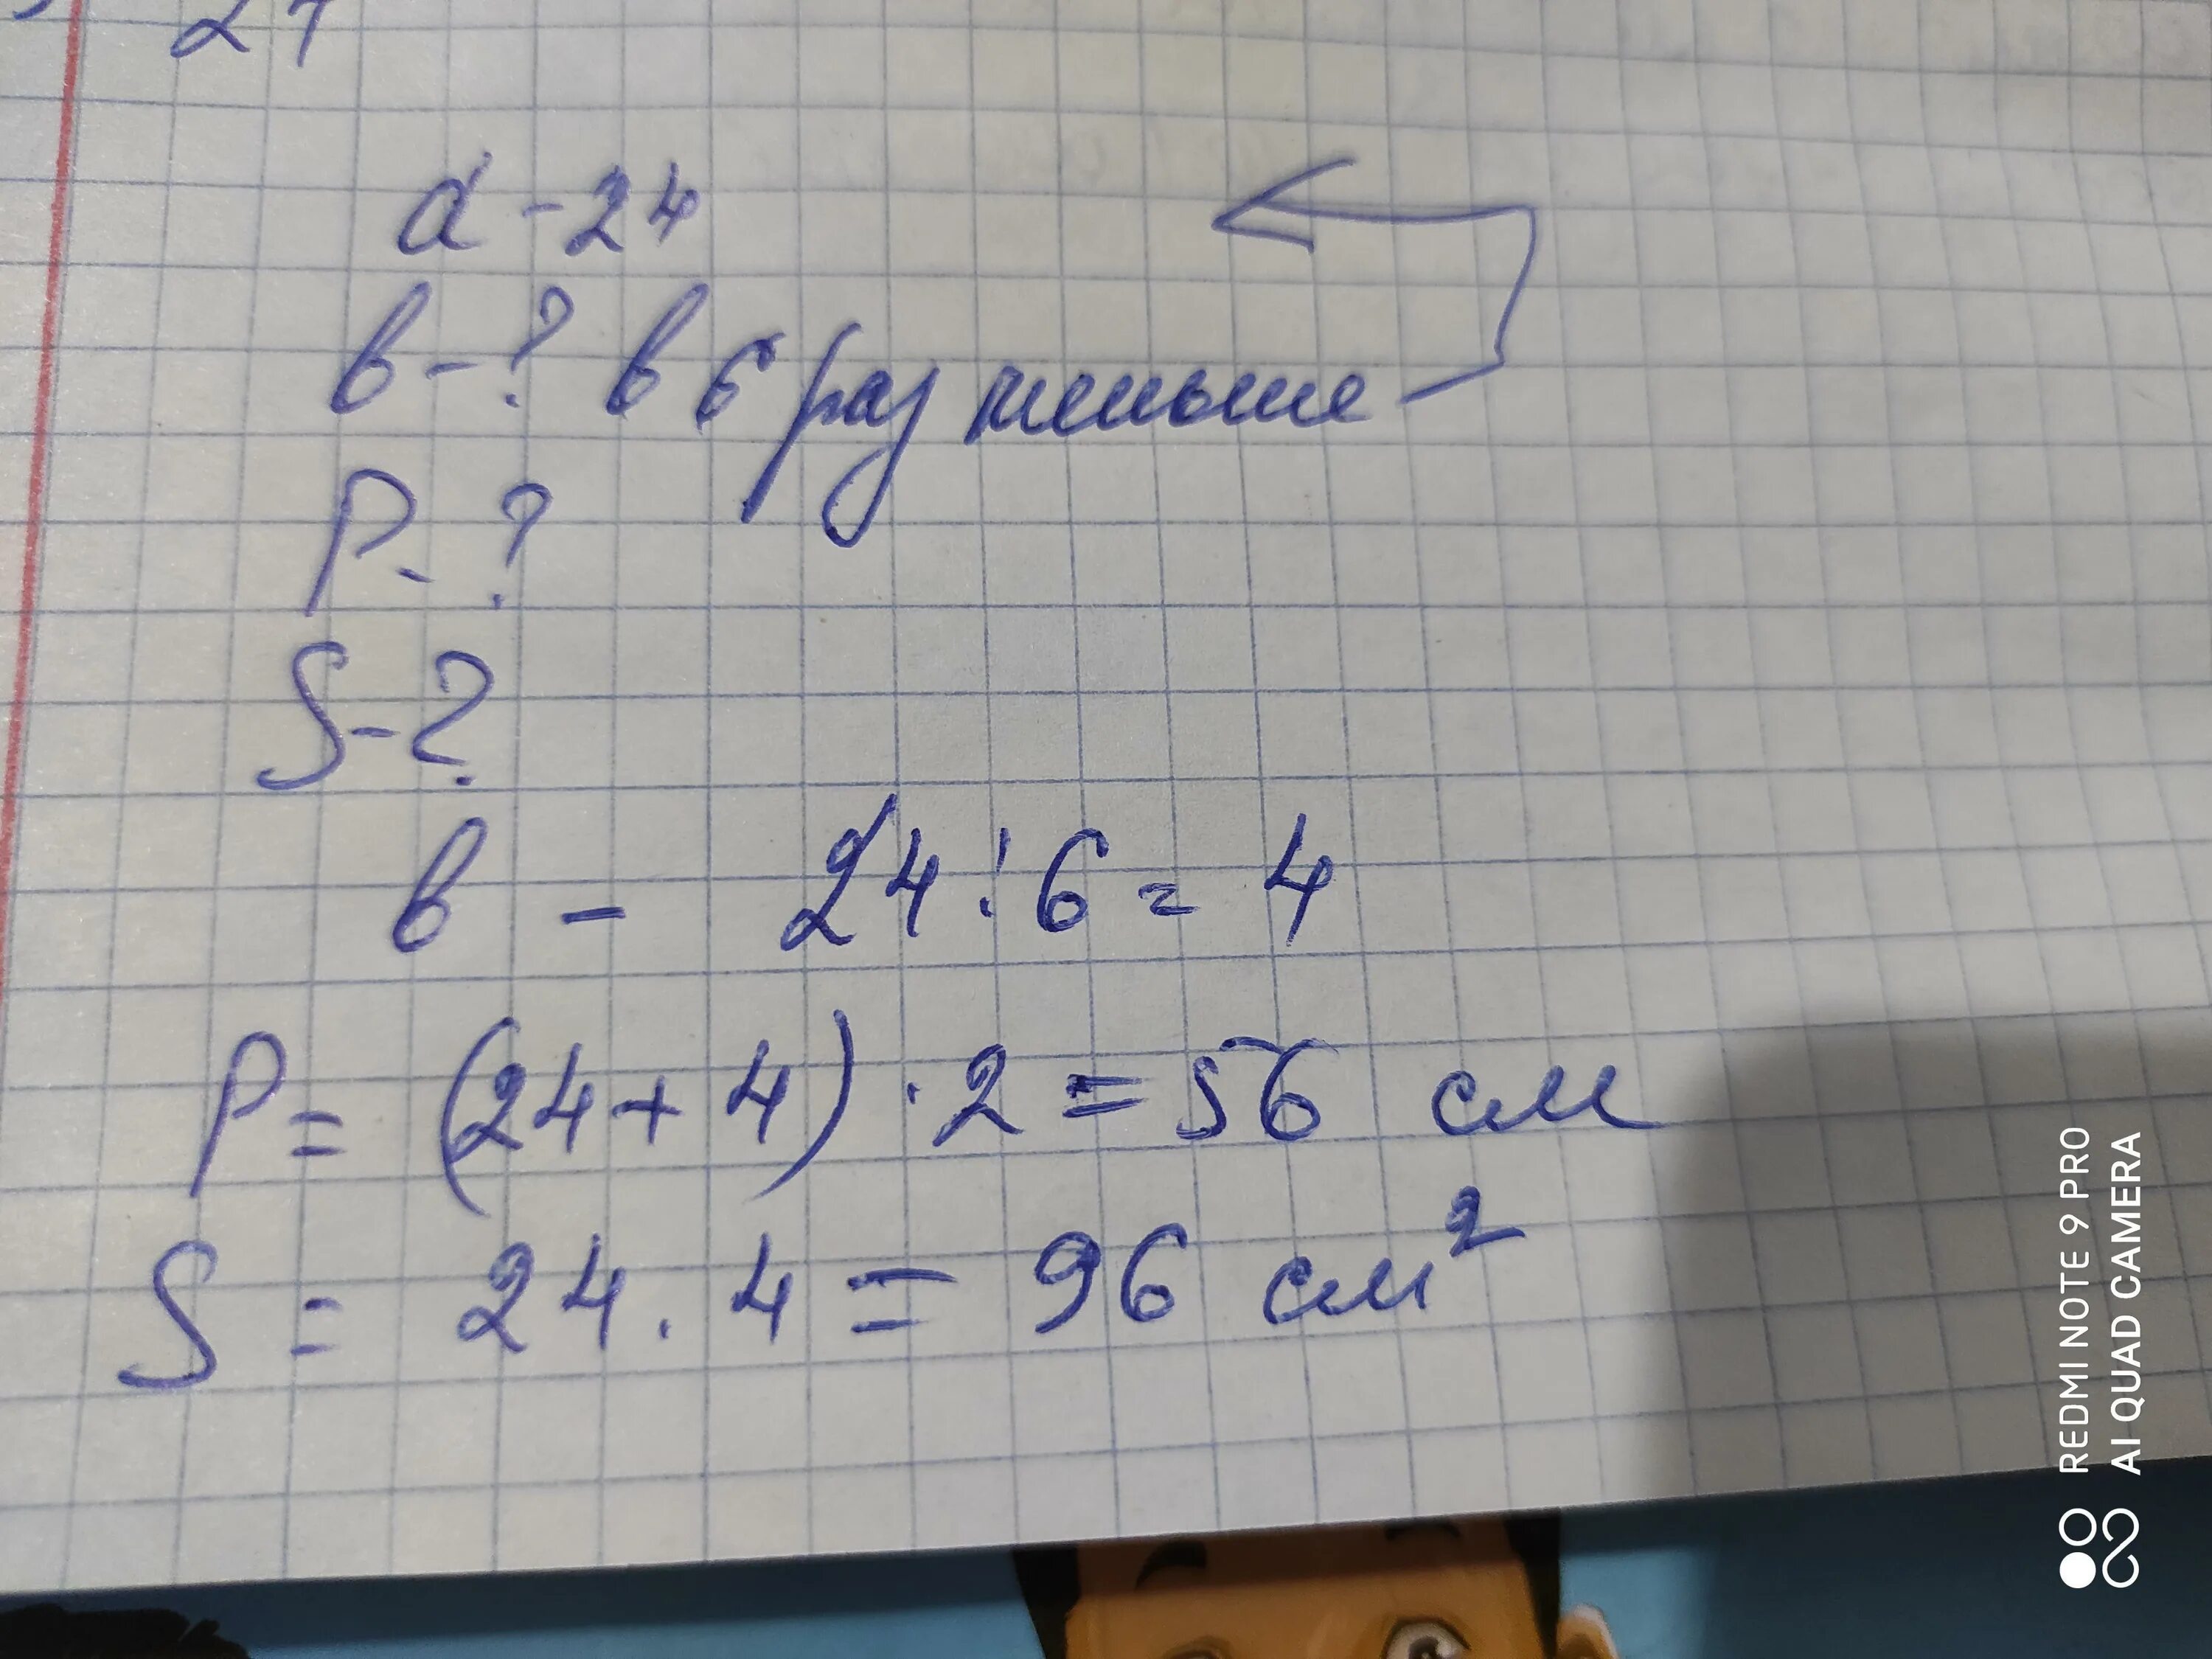 27
a - 24
в - ? в 6 раз меньше
P - ?
S - ?
в - 24 : 6 = 4
P = (24 + 4) · 2 = 56 см
S = 24 · 4 = 96 см²
REDMI NOTE 9 PRO
AI QUAD CAMERA